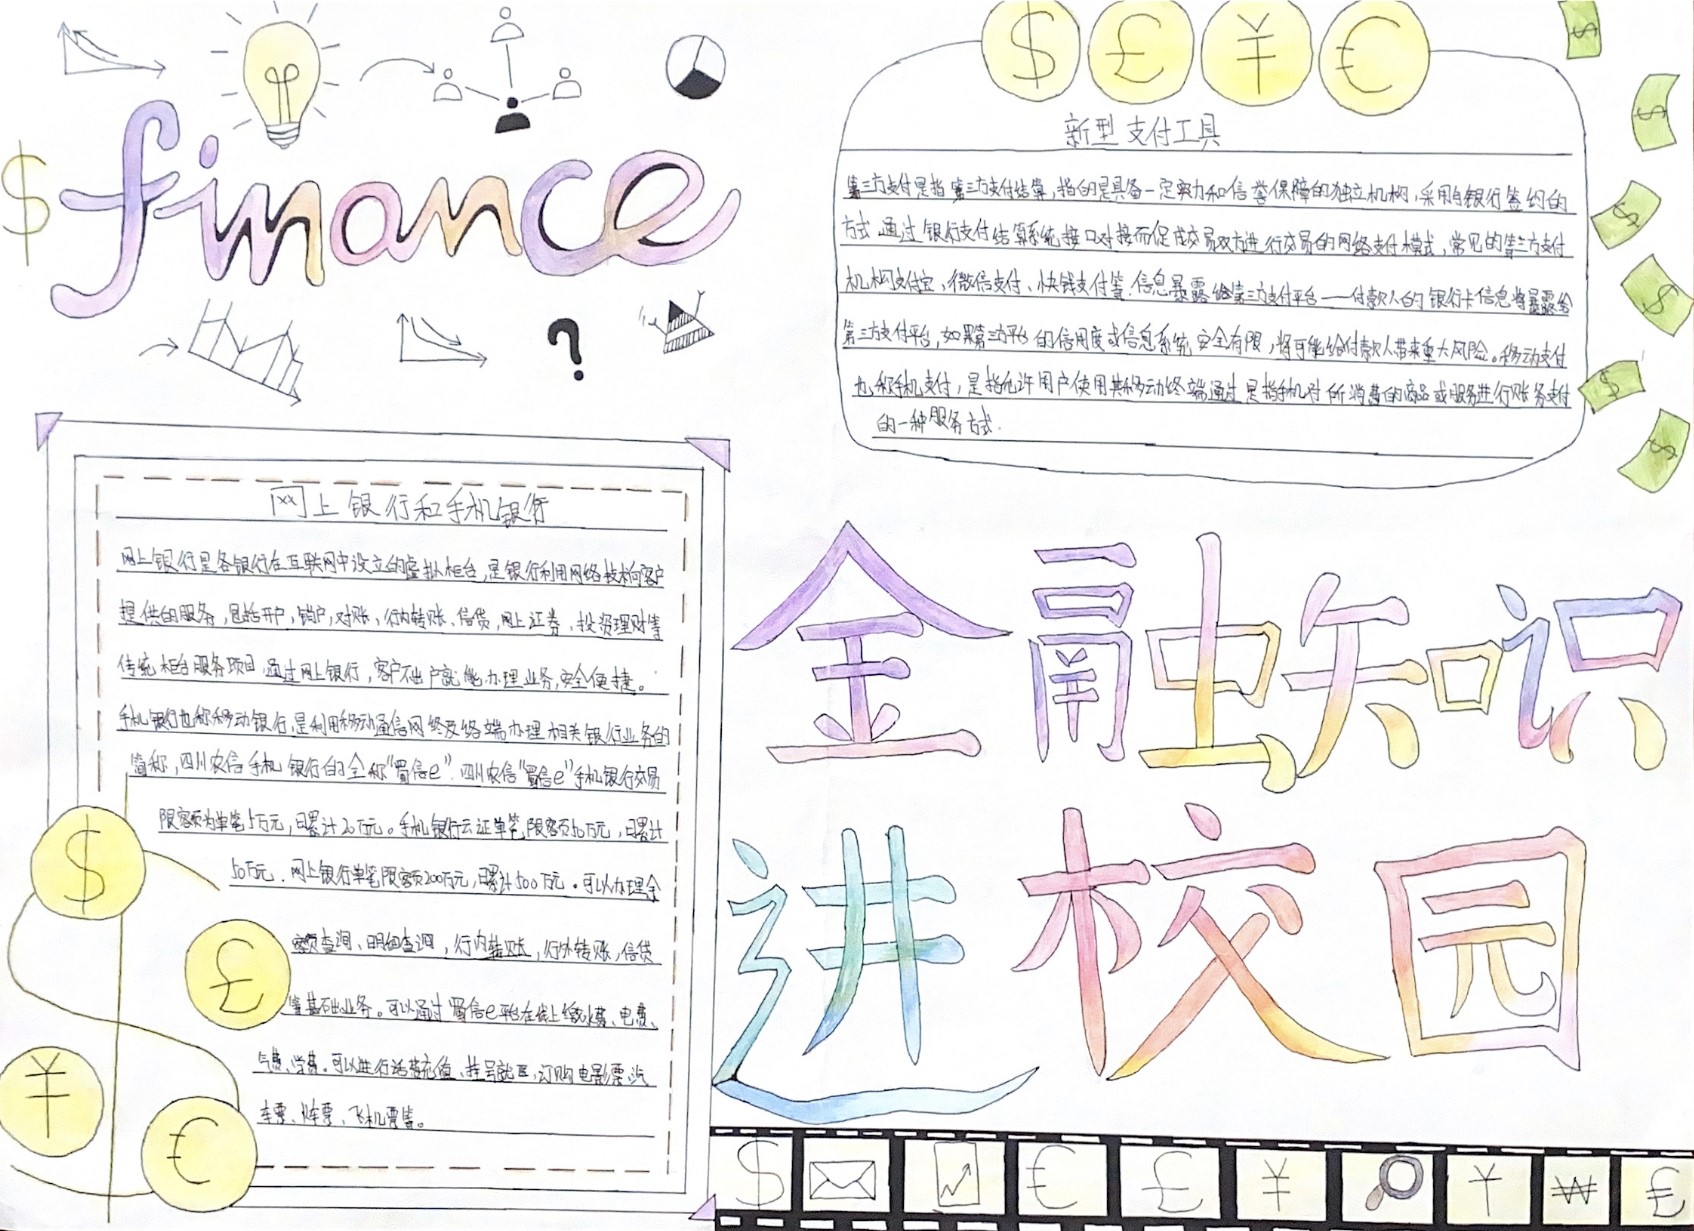 finance
$
$ £ ¥ €
新型支付工具
第三方支付是指第三方支付结算，指的是具备一定实力和信誉保障的独立机构，采用与银行签约的
方式通过银行支付结算系统接口对接而促成交易双方进行交易的网络支付模式，常见的第三方支付
机构支付宝、微信支付、快钱支付等.信息暴露给第三方支付平台——付款人的银行卡信息将暴露给
第三方支付平台，如果第三方平台的信用度或信息系统安全有限，将可能给付款人带来重大风险。移动支付
也称手机支付，是指允许用户使用其移动终端通过是指手机对所消费的商品或服务进行账务支付
的一种服务方式.
$
$
$
$
$
$
?
网上银行和手机银行
网上银行是各银行在互联网中设立的虚拟柜台，是银行利用网络技术向客户
提供的服务，包括开户，销户，对账，行内转账、信贷，网上证券、投资理财等
传统柜台服务项目，通过网上银行，客户不出户就能办理业务，安全便捷。
手机银行也称移动银行，是利用移动通信网络及终端办理相关银行业务的
简称，四川农信手机银行的全称“蜀信e”.四川农信“蜀信e”手机银行交易
限额为单笔5万元，日累计20万元。手机银行云证单笔限额50万元，日累计
50万元.网上银行单笔限额200万元，日累计500万元。可以办理余
额查询、明细查询，行内转账，行外转账，信贷
等基础业务。可以通过蜀信e平台在线上缴水费、电费、
气费、学费。可以进行话费充值、挂号就医，订购电影票、汽
车票、火车票、飞机票等。
$
£
¥
€
金融知识
进校园
$ € £ ¥ ¥ ₩ £